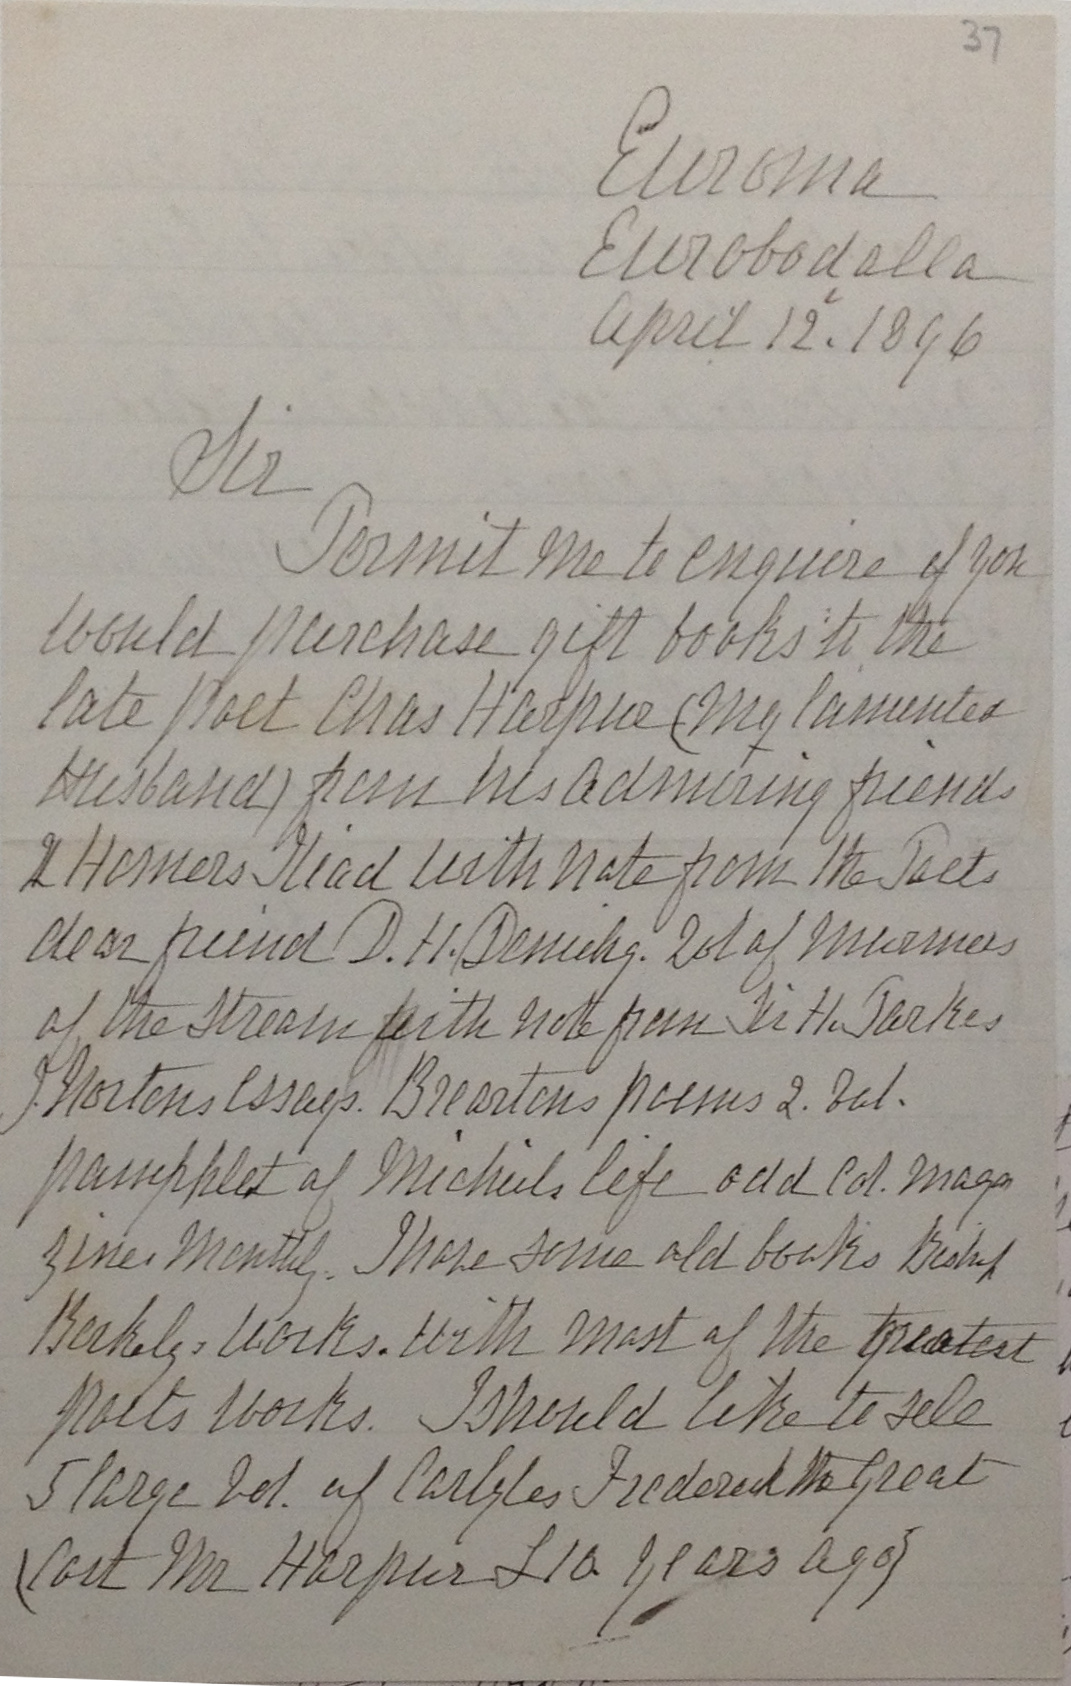 37
Euroma
Eurobodalla
April 12. 1896
Sir
Permit me to enquire if you
would purchase gift books to the
late Poet Chas Harpur (My lamented
Husband) from his admiring friends
Homers Iliad with note from the Poets
dear friend D. H. Deniehy. Vol of Murmurs
of the Stream with note from Sir H. Parkes
J. Nortons Essays. Breartons poems 2. Vol.
pamphlet of Michiels life odd Col. Maga
zine. Monthly. I have some old books Bishop
Berkelys Works. with most of the greatest
poets works. I should like to sell
5 large Vol. of Carlyles Frederick the Great
(Cost Mr Harpur £10 years ago)